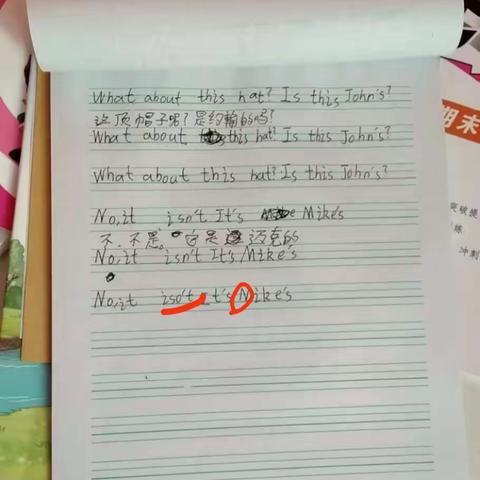 What about this hat? Is this John's?
这顶帽子呢？是约翰的吗？
What about this hat! Is this John's?
What about this hat? Is this John's?
No,it isn't It's Mike's
不.不是。它是迈克的
No,it isn't It's Mike's
No,it isn't It's Mike's
期末
突破提
练
冲刺